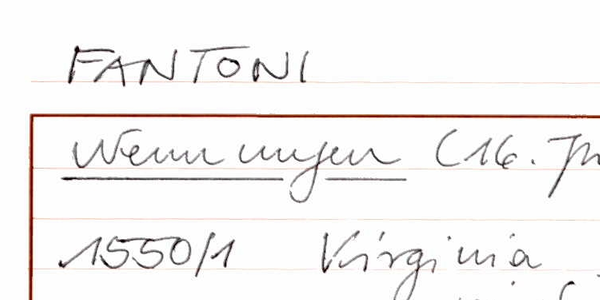 FANTONI
Nennungen (16. Jh
1550/1 Virginia